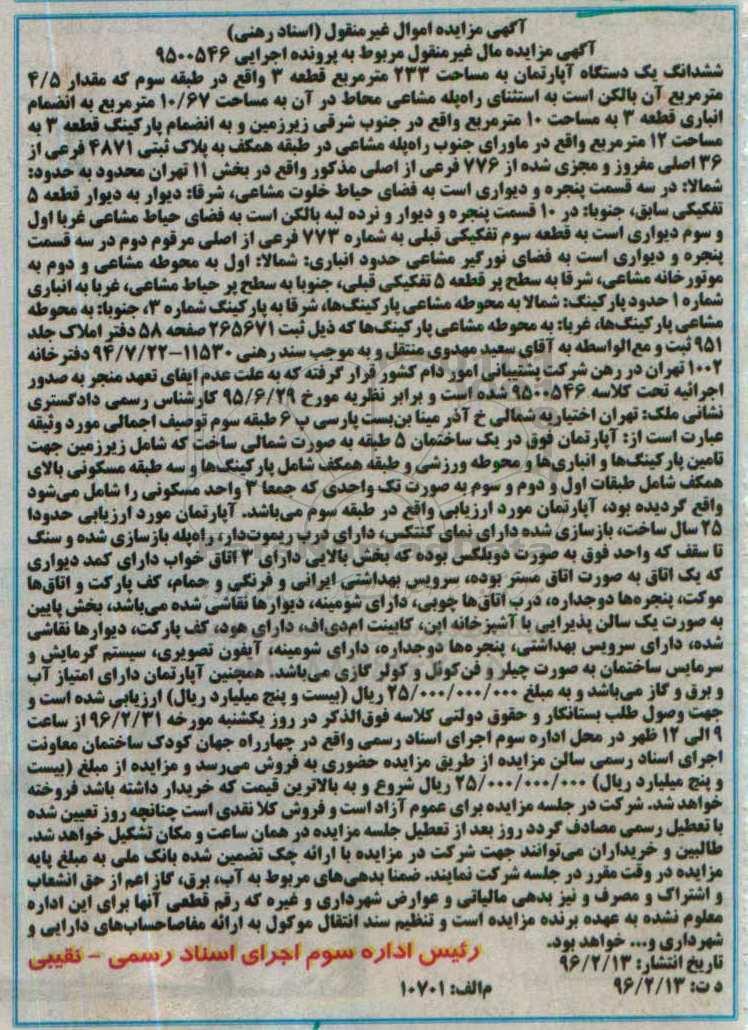 آگهی مزایده اموال غیرمنقول (اسناد رهنی)
آگهی مزایده مال غیرمنقول مربوط به پرونده اجرایی ۹۵۰۰۵۴۶
ششدانگ یک دستگاه آپارتمان به مساحت ۲۳۳ مترمربع قطعه ۳ واقع در طبقه سوم که مقدار ۴/۵
مترمربع آن بالکن است به استثنای راه‌پله مشاعی محاط در آن به مساحت ۱۰/۶۷ مترمربع به انضمام
انباری قطعه ۳ به مساحت ۱۰ مترمربع واقع در جنوب شرقی زیرزمین و به انضمام پارکینگ قطعه ۳ به
مساحت ۱۲ مترمربع واقع در ماورای جنوب راه‌پله مشاعی در طبقه همکف به پلاک ثبتی ۴۸۷۱ فرعی از
۳۶ اصلی مفروز و مجزی شده از ۷۷۶ فرعی از اصلی مذکور واقع در بخش ۱۱ تهران محدود به حدود:
شمالا: در سه قسمت پنجره و دیواری است به فضای حیاط خلوت مشاعی، شرقا: دیوار به دیوار قطعه ۵
تفکیکی سابق، جنوبا: در ۱۰ قسمت پنجره و دیوار و نرده لبه بالکن است به فضای حیاط مشاعی غربا اول
و سوم دیواری است به قطعه سوم تفکیکی قبلی به شماره ۷۷۳ فرعی از اصلی مرقوم دوم در سه قسمت
پنجره و دیواری است به فضای نورگیر مشاعی حدود انباری: شمالا: اول به محوطه مشاعی و دوم به
موتورخانه مشاعی، شرقا به سطح پر قطعه ۵ تفکیکی قبلی، جنوبا به سطح پر حیاط مشاعی، غربا به انباری
شماره ۱ حدود پارکینگ: شمالا به محوطه مشاعی پارکینگ‌ها، شرقا به پارکینگ شماره ۳، جنوبا: به محوطه
مشاعی پارکینگ‌ها، غربا: به محوطه مشاعی پارکینگ‌ها که ذیل ثبت ۲۶۵۶۷۱ صفحه ۵۸ دفتر املاک جلد
۹۵۱ ثبت و مع‌الواسطه به آقای سعید مهدوی منتقل و به موجب سند رهنی ۱۱۵۳۰-۹۴/۷/۲۲ دفترخانه
۱۰۰۲ تهران در رهن شرکت پشتیبانی امور دام کشور قرار گرفته که به علت عدم ایفای تعهد منجر به صدور
اجرائیه تحت کلاسه ۹۵۰۰۵۴۶ شده است و برابر نظریه مورخ ۹۵/۶/۲۹ کارشناس رسمی دادگستری
نشانی ملک: تهران اختیاریه شمالی خ آذر مینا بن‌بست پارسی پ ۶ طبقه سوم توصیف اجمالی مورد وثیقه
عبارت است از: آپارتمان فوق در یک ساختمان ۵ طبقه به صورت شمالی ساخت که شامل زیرزمین جهت
تامین پارکینگ‌ها و انباری‌ها و محوطه ورزشی و طبقه همکف شامل پارکینگ‌ها و سه طبقه مسکونی بالای
همکف شامل طبقات اول و دوم و سوم به صورت تک واحدی که جمعا ۳ واحد مسکونی را شامل می‌شود
واقع گردیده بود، آپارتمان مورد ارزیابی واقع در طبقه سوم می‌باشد. آپارتمان مورد ارزیابی حدودا
۲۵ سال ساخت، بازسازی شده دارای نمای کنتکس، دارای درب ریموت‌دار، راه‌پله بازسازی شده و سنگ
تا سقف که واحد فوق به صورت دوبلکس بوده که بخش بالایی دارای ۳ اتاق خواب دارای کمد دیواری
که یک اتاق به صورت اتاق مستر بوده، سرویس بهداشتی ایرانی و فرنگی و حمام، کف پارکت و اتاق‌ها
موکت، پنجره‌ها دوجداره، درب اتاق‌ها چوبی، دارای شومینه، دیوارها نقاشی شده می‌باشد، بخش پایین
به صورت یک سالن پذیرایی با آشپزخانه اپن، کابینت ام‌دی‌اف، دارای هود، کف پارکت، دیوارها نقاشی
شده، دارای سرویس بهداشتی، پنجره‌ها دوجداره، دارای شومینه، آیفون تصویری، سیستم گرمایش و
سرمایس ساختمان به صورت چیلر و فن‌کوئل و کولر گازی می‌باشد. همچنین آپارتمان دارای امتیاز آب
و برق و گاز می‌باشد و به مبلغ ۲۵/۰۰۰/۰۰۰/۰۰۰ ریال (بیست و پنج میلیارد ریال) ارزیابی شده است و
جهت وصول طلب بستانکار و حقوق دولتی کلاسه فوق‌الذکر در روز یکشنبه مورخه ۹۶/۲/۳۱ از ساعت
۹ الی ۱۲ ظهر در محل اداره سوم اجرای اسناد رسمی واقع در چهارراه جهان کودک ساختمان معاونت
اجرای اسناد رسمی سالن مزایده از طریق مزایده حضوری به فروش می‌رسد و مزایده از مبلغ (بیست
و پنج میلیارد ریال) ۲۵/۰۰۰/۰۰۰/۰۰۰ ریال شروع و به بالاترین قیمت که خریدار داشته باشد فروخته
خواهد شد. شرکت در جلسه مزایده برای عموم آزاد است و فروش کلا نقدی است چنانچه روز تعیین شده
با تعطیل رسمی مصادف گردد روز بعد از تعطیل جلسه مزایده در همان ساعت و مکان تشکیل خواهد شد.
طالبین و خریداران می‌توانند جهت شرکت در مزایده با ارائه چک تضمین شده بانک ملی به مبلغ پایه
مزایده در وقت مقرر در جلسه شرکت نمایند. ضمنا بدهی‌های مربوط به آب، برق، گاز اعم از حق انشعاب
و اشتراک و مصرف و نیز بدهی مالیاتی و عوارض شهرداری و غیره که رقم قطعی آنها برای این اداره
معلوم نشده به عهده برنده مزایده است و تنظیم سند انتقال موکول به ارائه مفاصاحساب‌های دارایی و
شهرداری و... خواهد بود.
تاریخ انتشار: ۹۶/۲/۱۳
رئیس اداره سوم اجرای اسناد رسمی - نقیبی
د ت: ۹۶/۲/۱۳
م‌الف: ۱۰۷۰۱